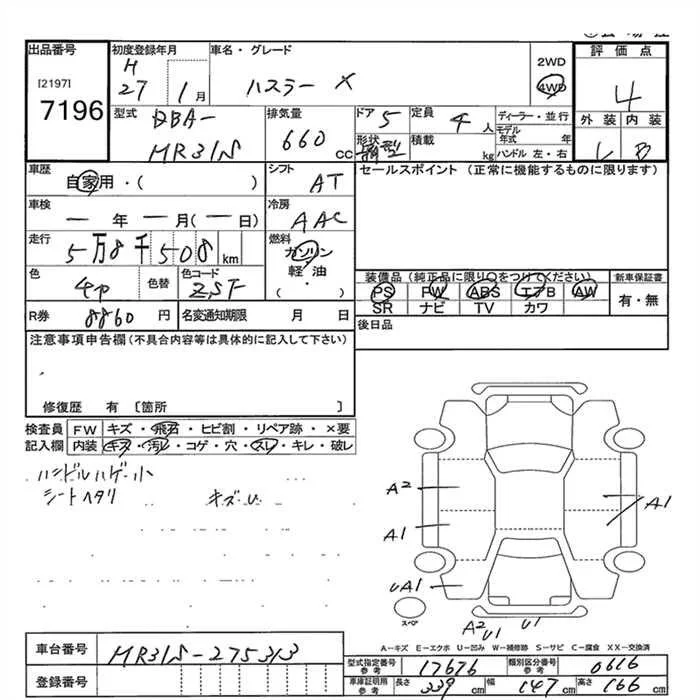 出品番号 初度登録年月 車名・グレード 評価点
[2197] H 27 1月 ハスラー X 2WD 4WD 4
7196 外装 内装
型式 DBA- MR31S 排気量 660 cc ドア 5 定員 4人 ディーラー・並行
形状 箱型 積載 kg モデル年式 年 ハンドル 左・右 B
車歴 自家用・( ) シフト AT セールスポイント (正常に機能するものに限ります)
車検 ― 年 ― 月(― 日) 冷房 AAC
走行 5万8千508 km 燃料 ガソリン 軽・油 ・ ( )
色 色替 色コード ZSF 装備品(純正品に限り○をつけてください) 新車保証書
PS PW ABS エアB AW 有・無
SR ナビ TV カワ
R券 8860 円 名変通知期限 月 日 後日品
注意事項申告欄(不具合内容等は具体的に記入して下さい)
修復歴 有 〔箇所 〕
検査員 FW キズ・飛石・ヒビ割・リペア跡・×要
記入欄 内装 キズ・汚レ・コゲ・穴・スレ・キレ・破レ
ハンドルハゲ小
シートヘタリ キズU
A2
A1
A1
UA1
スペア
A2 U1 U1
A−キズ E−エクボ U−凹み W−補修跡 S−サビ C−腐食 XX−交換済
車台番号 MR31S-275313
登録番号
型式指定番号 参考 17676 類別区分番号 参考 0616
車庫証明用 参考 長さ 339 cm 幅 147 cm 高さ 166 cm